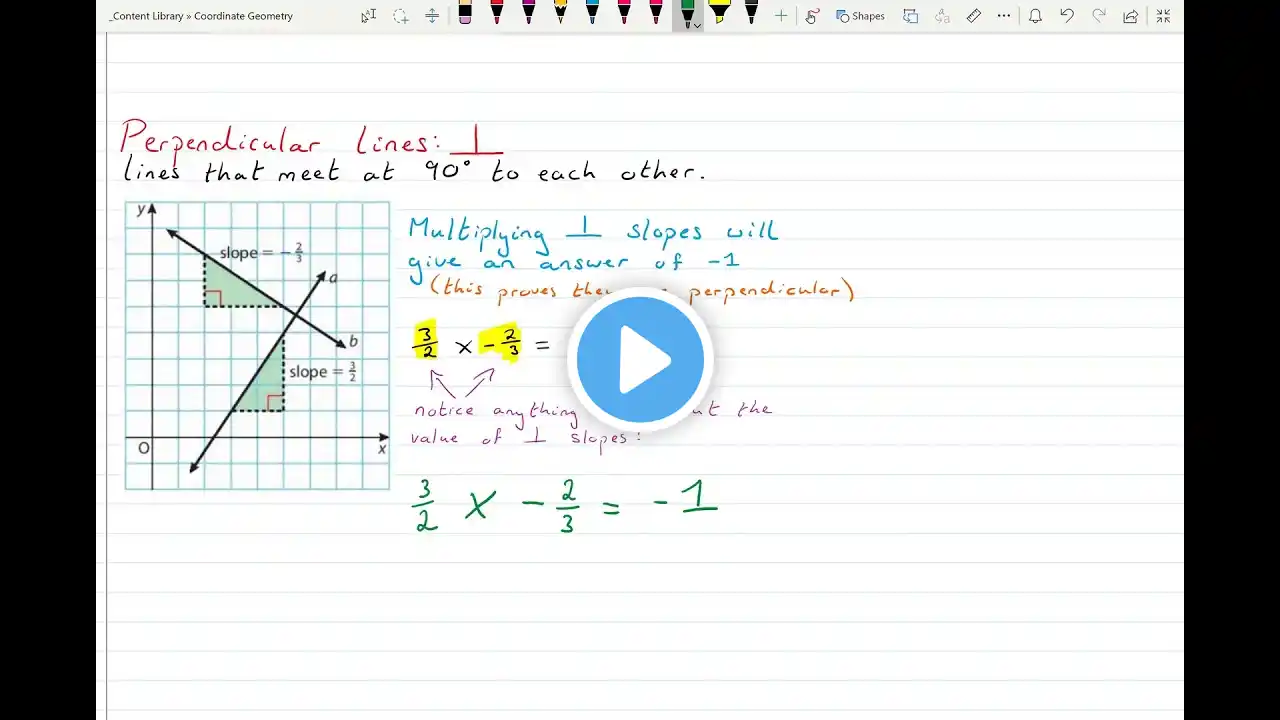 _Content Library » Coordinate Geometry
Shapes
Perpendicular Lines: ⊥
lines that meet at 90° to each other.
y
slope = -2/3
a
b
slope = 3/2
O
x
Multiplying ⊥ slopes will
give an answer of -1
(this proves perpendicular)
3/2 x -2/3 =
notice anything the
value of ⊥ slopes:
3/2 x -2/3 = -1